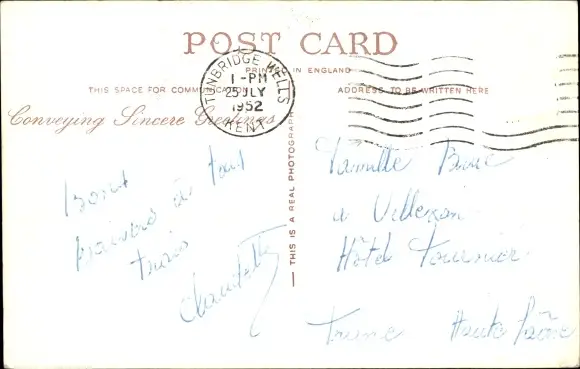 POST CARD
PRINTED IN ENGLAND
THIS SPACE FOR COMMUNICATION
ADDRESS TO BE WRITTEN HERE
Conveying Sincere Greetings
TUNBRIDGE WELLS
1-PM
25 JLY
1952
KENT
THIS IS A REAL PHOTOGRAPH
Bons
baisers à tout
Claudette
Famille
a
Hôtel Tournier
Haute Saône